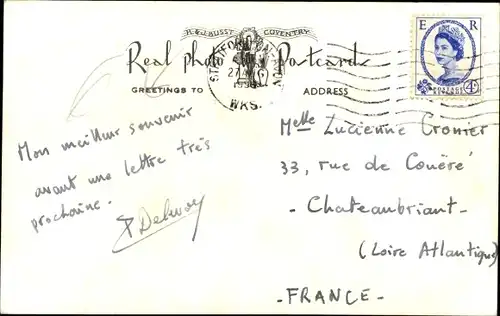 H.&J. BUSST COVENTRY
Real photo Postcards
GREETINGS TO
ADDRESS
WKS.
E R
POSTAGE
REVENUE
4D
Mon meilleur souvenir
avant une lettre très
prochaine.
Melle Lucienne Cronier
33, rue de Couëré
- Chateaubriant -
(Loire Atlantique)
- FRANCE -